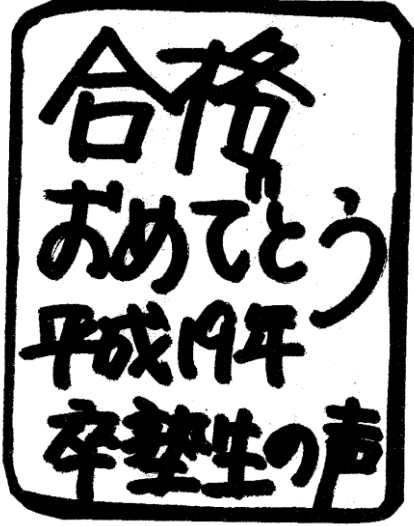 合格
おめでとう
平成19年
卒塾生の声